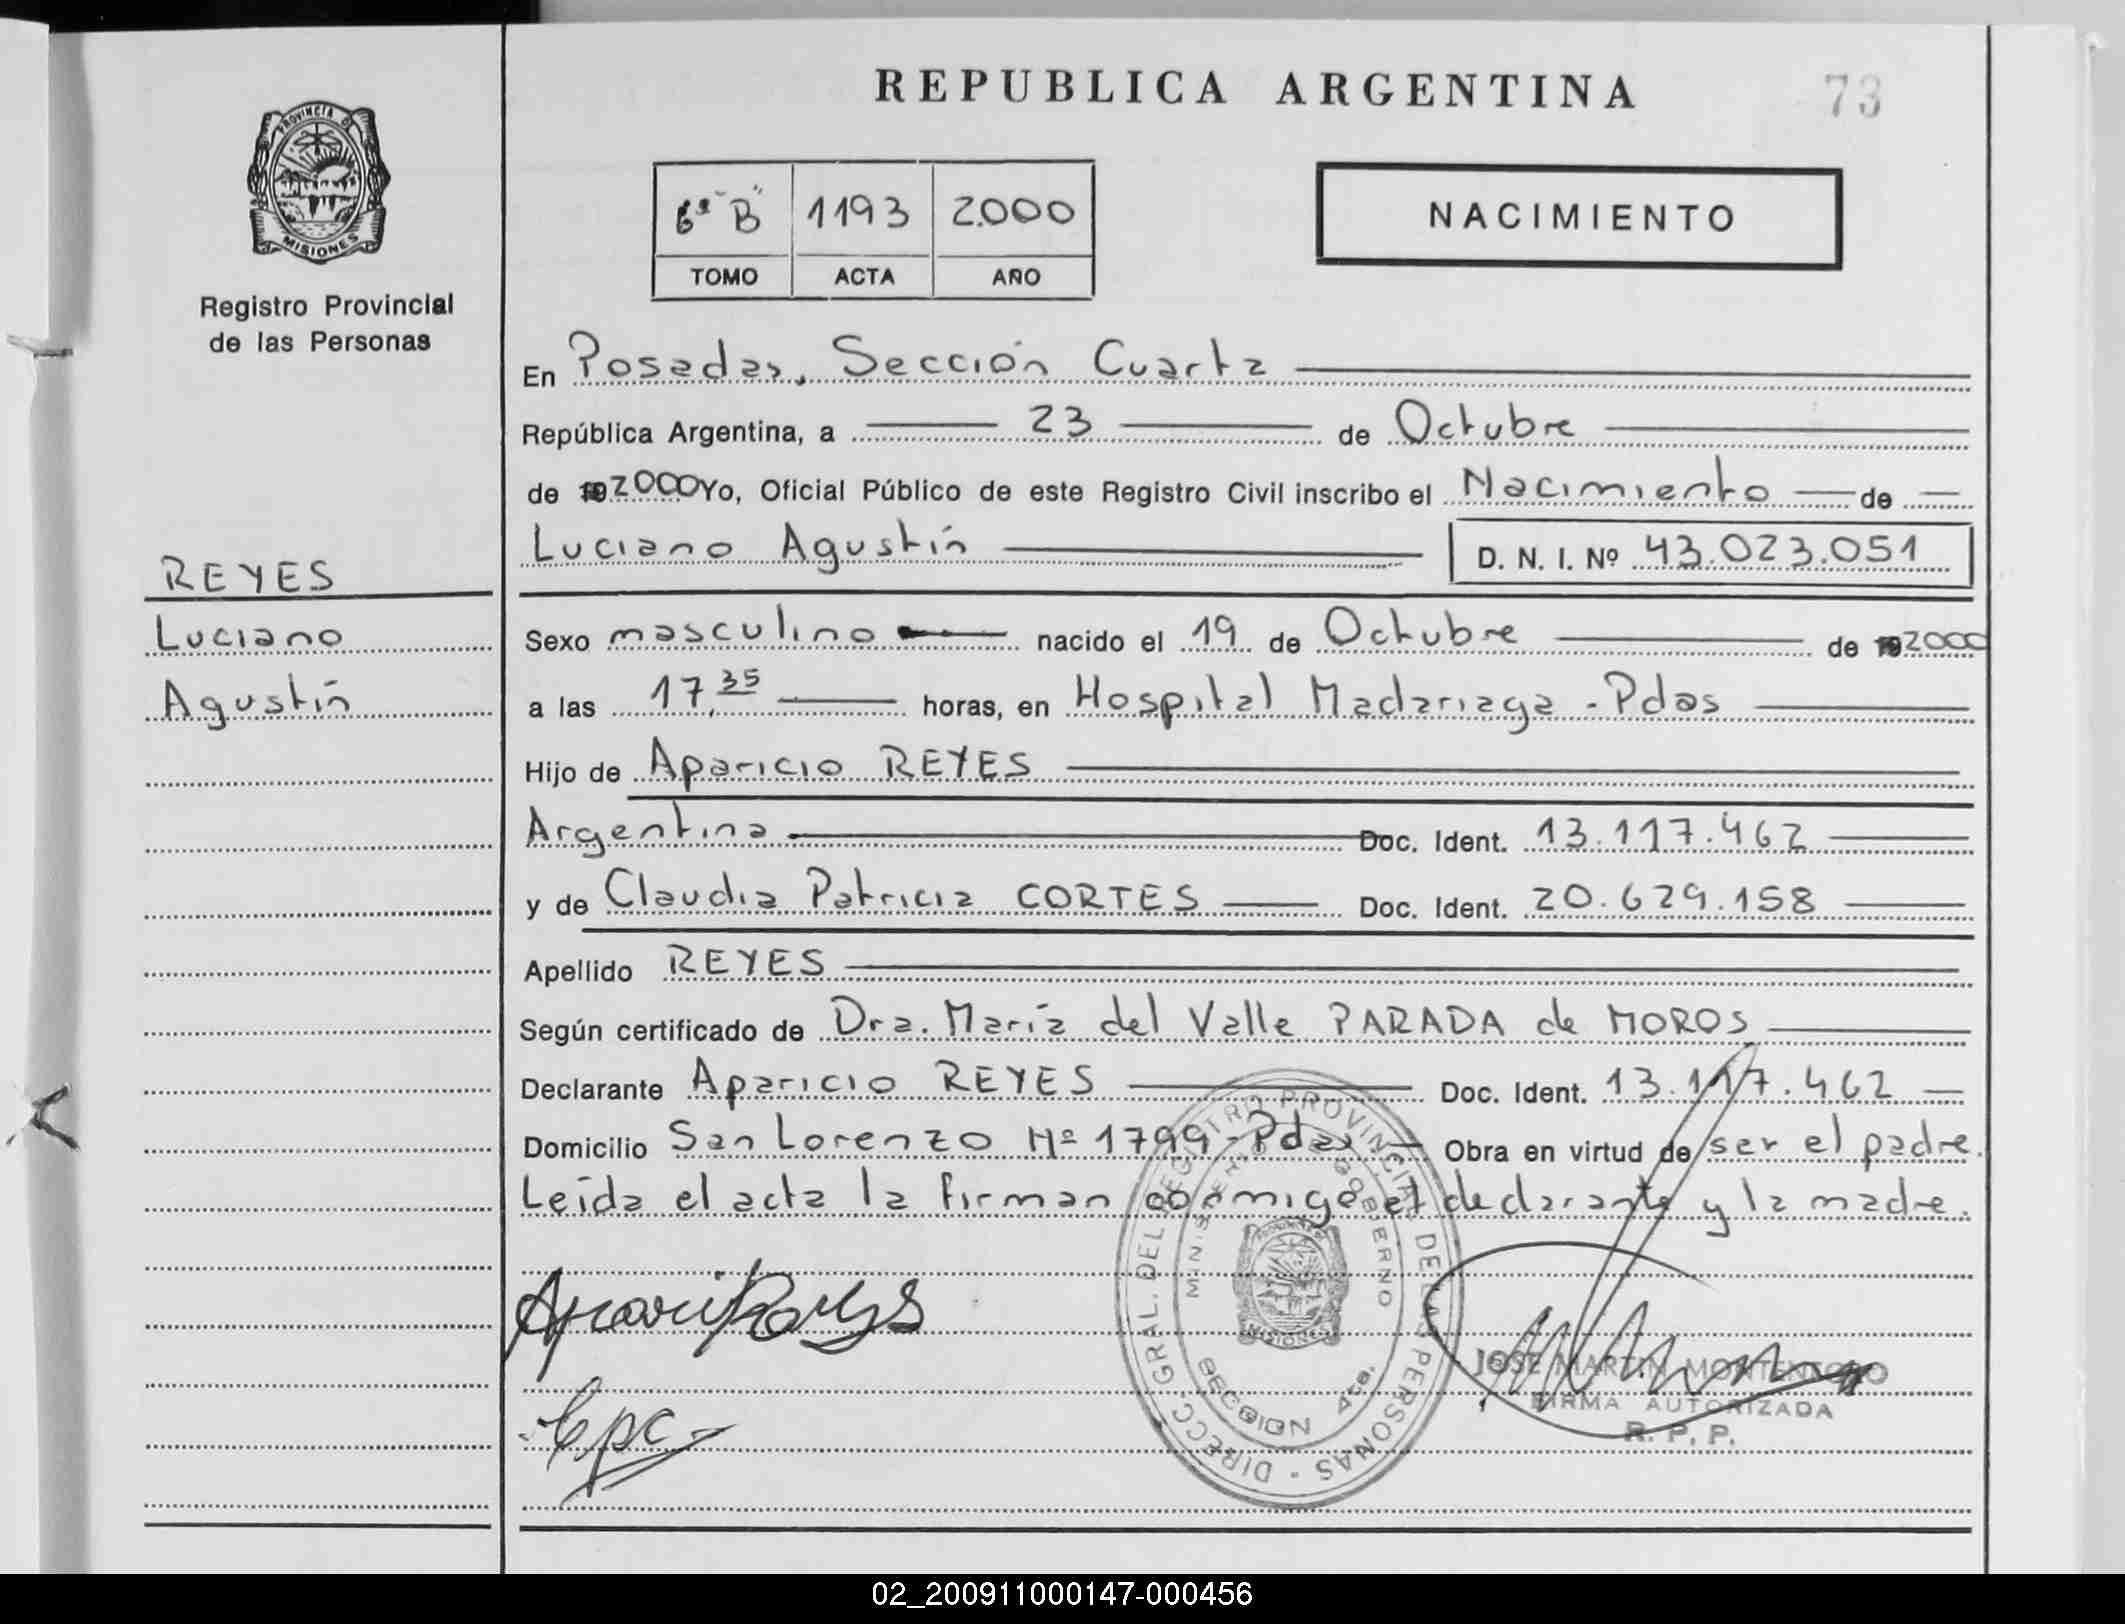 REPUBLICA ARGENTINA
73
PROVINCIA DE
MISIONES
Registro Provincial
de las Personas
6º "B" 1193 2000
TOMO ACTA AÑO
NACIMIENTO
En Posadas, Sección Cuarta
República Argentina, a 23 de Octubre
de 2000 Yo, Oficial Público de este Registro Civil inscribo el Nacimiento de
Luciano Agustín D. N. I. Nº 43.023.051
REYES
Luciano
Agustín
Sexo masculino nacido el 19 de Octubre de 2000
a las 17,35 horas, en Hospital Madariaga - Pdas
Hijo de Aparicio REYES
Argentina Doc. Ident. 13.117.462
y de Claudia Patricia CORTES Doc. Ident. 20.629.158
Apellido REYES
Según certificado de Dra. María del Valle PARADA de MOROS
Declarante Aparicio REYES Doc. Ident. 13.117.462
Domicilio San Lorenzo Nº 1799 - Pdas - Obra en virtud de ser el padre.
Leída el acta la firman conmigo el declarante y la madre.
DIRECC. GRAL. DEL REGISTRO PROVINCIAL DE LAS PERSONAS
MINISTERIO DE GOBIERNO
MISIONES
SECCION 4ta.
JOSE MARTIN MONTENEGRO
FIRMA AUTORIZADA
R. P. P.
02_200911000147-000456